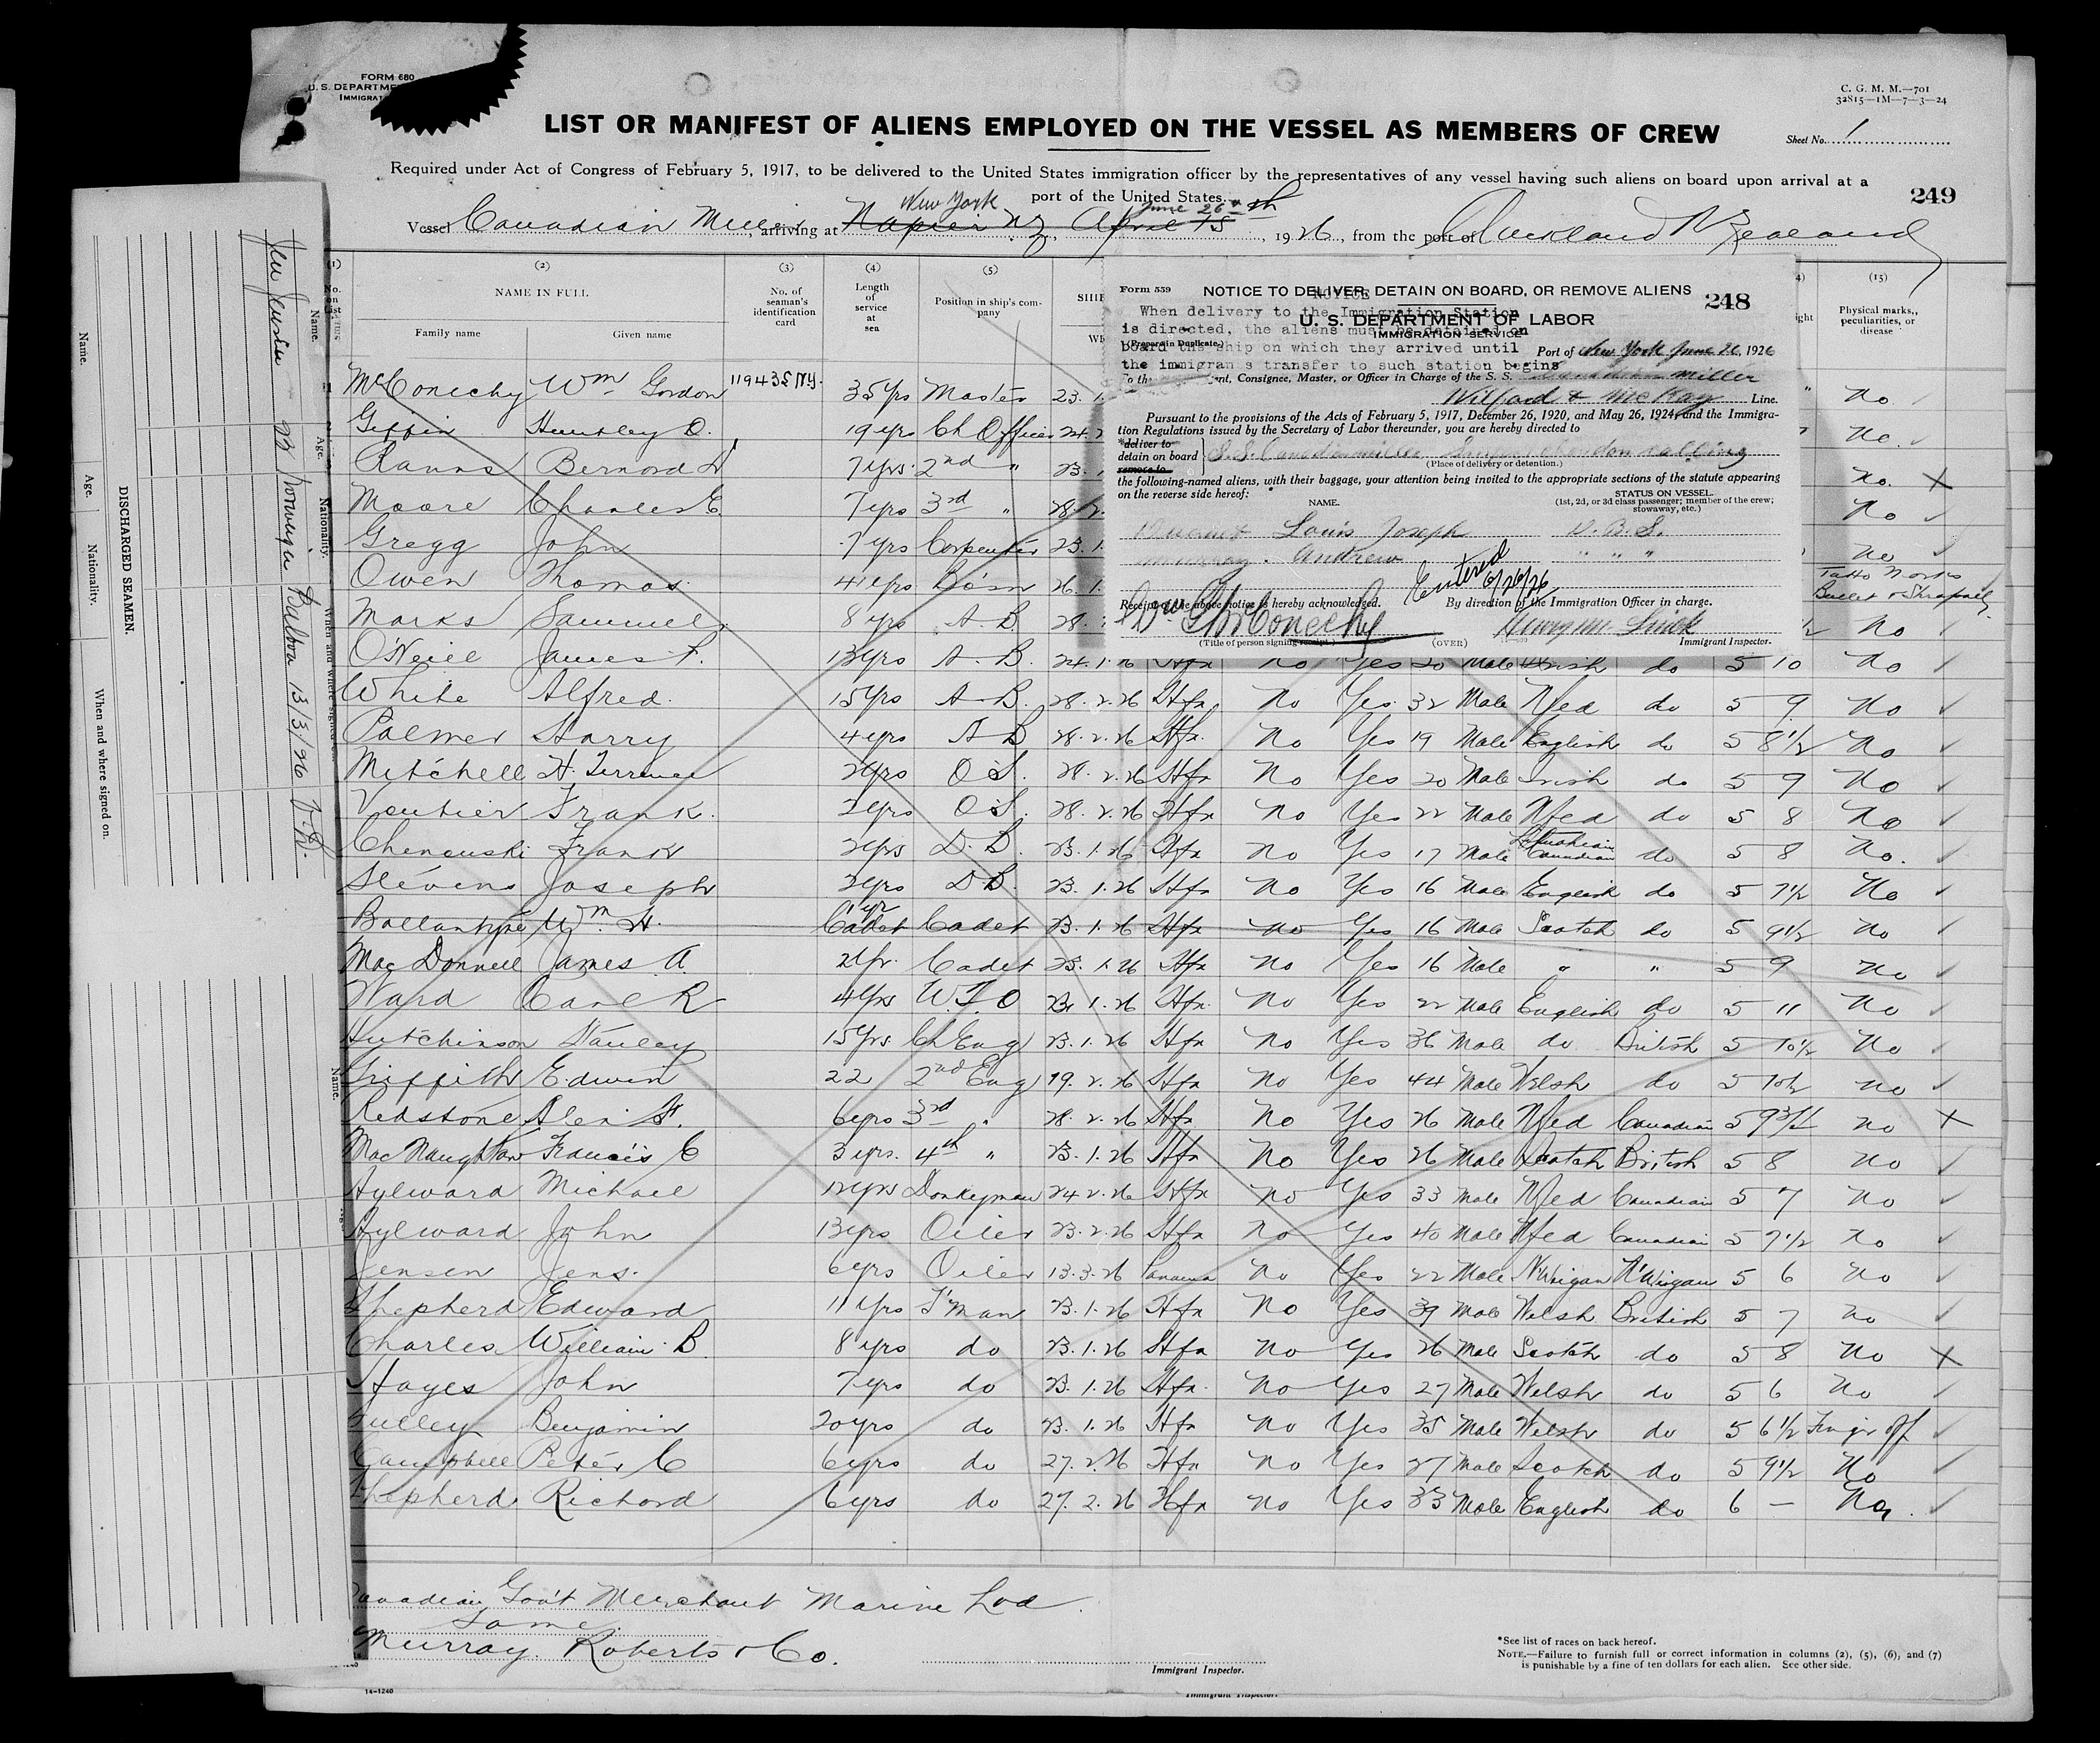 FORM 680
U. S. DEPARTME
IMMIGRAT
C. G. M. M.—701
32815—1M—7—3—24
LIST OR MANIFEST OF ALIENS EMPLOYED ON THE VESSEL AS MEMBERS OF CREW
Sheet No. 1
Required under Act of Congress of February 5, 1917, to be delivered to the United States immigration officer by the representatives of any vessel having such aliens on board upon arrival at a
port of the United States.
249
New York June 26th
Vessel Canadian Miller, arriving at Napier NZ, April 15, 1926, from the port of Auckland N Zealand
(1) (2) (3) (4) (5) (15)
No. on List
NAME IN FULL
Family name Given name
No. of seaman's identification card
Length of service at sea
Position in ship's company
Physical marks, peculiarities, or disease
Form 559 NOTICE TO DELIVER, DETAIN ON BOARD, OR REMOVE ALIENS 248
NOTICE
When delivery to the Immigration Station
is directed, the aliens must be detained on
board the ship on which they arrived until
the immigran s transfer to such station begins
U. S. DEPARTMENT OF LABOR
IMMIGRATION SERVICE
(Prepare in Duplicate.)
Port of New York June 26, 1926
ent, Consignee, Master, or Officer in Charge of the S. S. Miller
Wilford & McKay Line.
Pursuant to the provisions of the Acts of February 5, 1917, December 26, 1920, and May 26, 1924, and the Immigra-
tion Regulations issued by the Secretary of Labor thereunder, you are hereby directed to
*deliver to
detain on board
remove to
S.S. Canadian Miller
(Place of delivery or detention.)
the following-named aliens, with their baggage, your attention being invited to the appropriate sections of the statute appearing
on the reverse side hereof:
NAME. STATUS ON VESSEL.
(1st, 2d, or 3d class passenger; member of the crew; stowaway, etc.)
Louis Joseph D. B. S.
Murray. Andrew " " "
Entered 6/26/26
Receipt of the above notice is hereby acknowledged. By direction of the Immigration Officer in charge.
Wm G McConechy
(Title of person signing receipt.) (OVER) Immigrant Inspector.
McConechy Wm Gordon 119435 NY. 35 yrs Master 23. 1. No
Giffin Huntley O. 19 yrs Ch Officer 24. 2 No
Ranns Bernard 7 yrs 2nd " 23. No. X
Moore Charles E 7 yrs 3rd " 28. 2. No
Gregg John 7 yrs Carpenter 23. 1. No
Owen Thomas 4 yrs Bosn 26. 1. Tatto Marks Bullet & Shrapnel
Marks Sammuel 8 yrs A. B. 28. No
O'Neill James P. 13 yrs A. B. 24. 1. 26 Hfx No Yes 20 Male Irish do 5 10 No
White Alfred 15 yrs A. B. 28. 2. 26 Hfx No Yes 32 Male Nfled do 5 9 No
Palmer Harry 4 yrs A B 28. 2. 26 Hfx No Yes 19 Male English do 5 8½ No
Mitchell H. Terrence 2 yrs O S. 28. 2. 26 Hfx No Yes 20 Male Irish do 5 9 No
Voutier Frank 2 yrs O S. 28. 2. 26 Hfx No Yes 22 Male Nfled do 5 8 No
Chenauski Frank 2 yrs D. B. 23. 1. 26 Hfx No Yes 17 Male Canadian do 5 8 No.
Stevens Joseph 2 yrs D B. 23. 1. 26 Hfx No Yes 16 Male English do 5 7½ No
Ballantyne Wm H. 1 yr Cadet Cadet 23. 1. 26 Hfx No Yes 16 Male Scotch do 5 9½ No
MacDonnell James A 2 yr. Cadet 23. 1. 26 Hfx No Yes 16 Male " " 5 9 No
Ward Carl R 4 yrs W. T. O 23. 1. 26 Hfx No Yes 22 Male English do 5 11 No
Hutchinson Stanley 15 yrs Ch Eng 23. 1. 26 Hfx No Yes 36 Male do British 5 10½ No
Griffith Edwin 22 2nd Eng 19. 2. 26 Hfx No Yes 44 Male Welsh do 5 10½ No
Redstone Alex H. 6 yrs 3rd " 28. 2. 26 Hfx No Yes 26 Male Nfled Canadian 5 9¾ No X
MacNaughton Francis C 3 yrs. 4th " 23. 1. 26 Hfx No Yes 26 Male Scotch British 5 8 No
Aylward Michael 12 yrs Donkeyman 24. 2. 26 Hfx No Yes 33 Male Nfled Canadian 5 7 No
Aylward John 13 yrs Oiler 23. 2. 26 Hfx No Yes 40 Male Nfled Canadian 5 7½ No
Jensen Jens 6 yrs Oiler 13. 3. 26 Panama No Yes 22 Male N'Wigan N'Wigan 5 6 No
Shepherd Edward 11 yrs F'man 23. 1. 26 Hfx No Yes 39 Male Welsh British 5 7 No
Charles William B 8 yrs do 23. 1. 26 Hfx No Yes 26 Male Scotch do 5 8 No X
Hayes John 7 yrs do 23. 1. 26 Hfx No Yes 27 Male Welsh do 5 6 No
Gulley Benjamin 20 yrs do 23. 1. 26 Hfx No Yes 35 Male Welsh do 5 6½ Finger off
Campbell Peter C 6 yrs do 27. 2. 26 Hfx No Yes 27 Male Scotch do 5 9½ No
Shepherd Richard 6 yrs do 27. 2. 26 Hfx No Yes 33 Male English do 6 — No
Canadian Gov't Merchant Marine Ltd.
Same
Murray. Roberts & Co.
Immigrant Inspector.
*See list of races on back hereof.
NOTE.—Failure to furnish full or correct information in columns (2), (5), (6), and (7)
is punishable by a fine of ten dollars for each alien. See other side.
14—1240
Immigrant Inspector.
DISCHARGED SEAMEN.
Name. Age. Nationality. When and where signed on.
Name. Age. Nationality. When and where signed
Jen Jensen 22 Norwegian Balboa 13/3/26
Name.